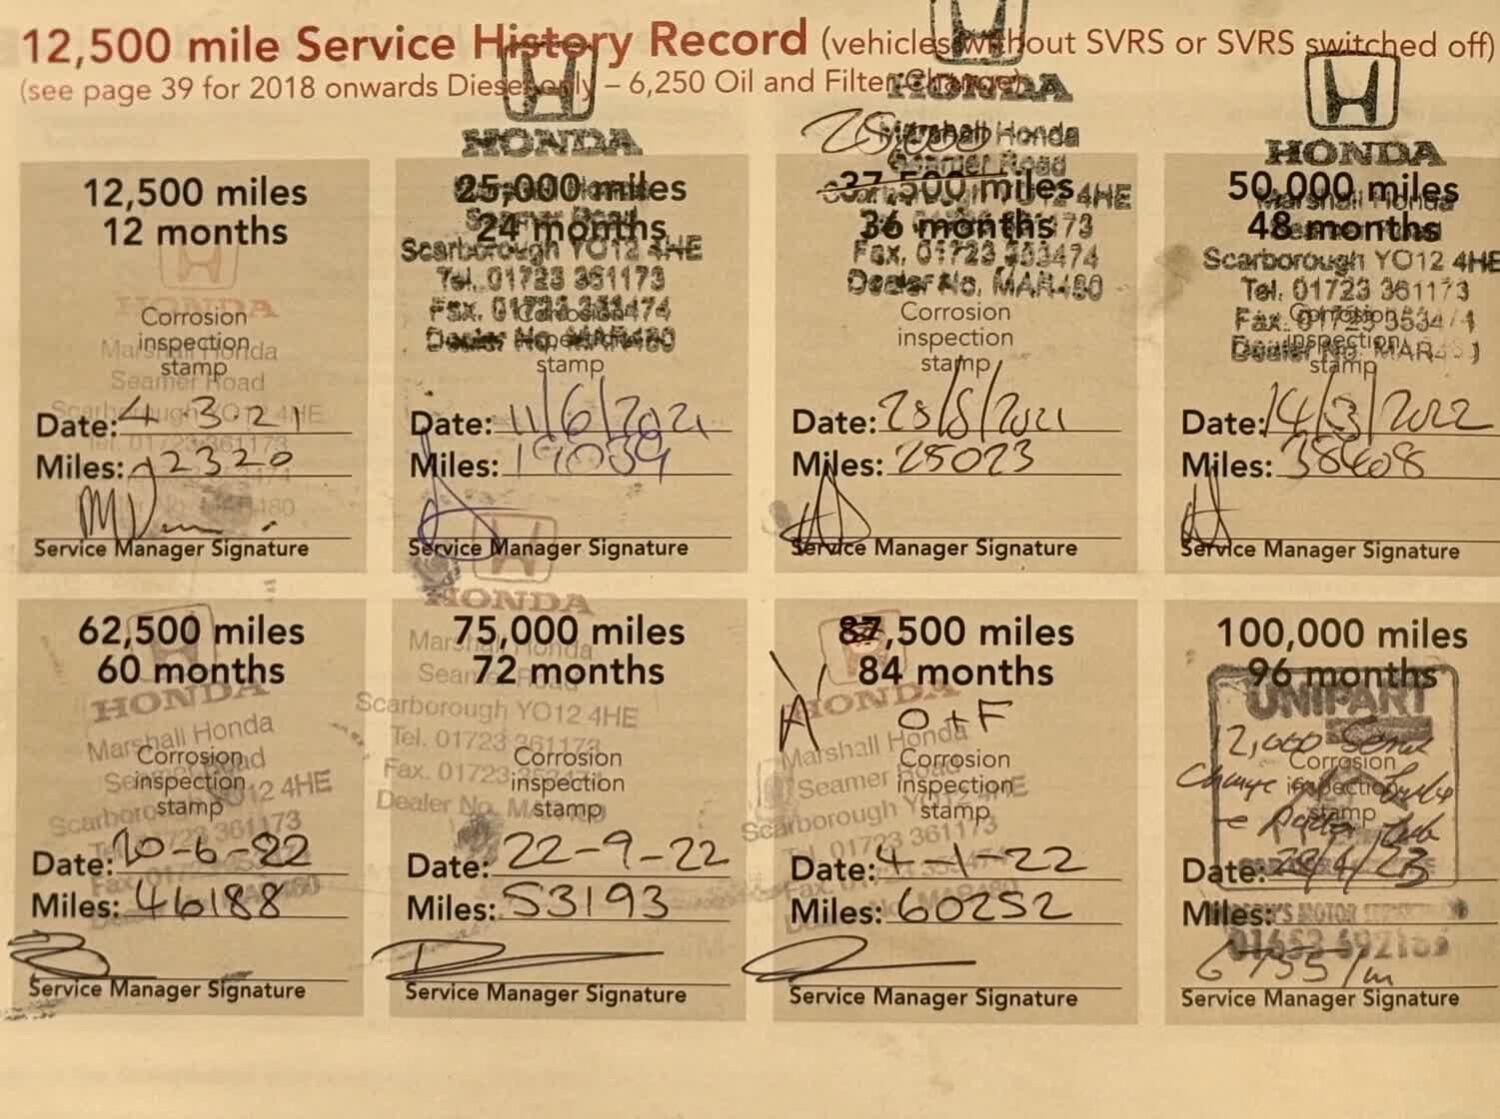 12,500 mile Service History Record (vehicles without SVRS or SVRS switched off)
(see page 39 for 2018 onwards Diesel only – 6,250 Oil and Filter Change)
12,500 miles
12 months
HONDA
Corrosion
inspection
stamp
Marshall Honda
Seamer Road
Scarborough YO12 4HE
01723 361173
MAR480
Date: 4-3-21
Miles: 12320
Service Manager Signature
HONDA
25,000 miles
24 months
Scarborough YO12 4HE
Tel. 01723 361173
Fax. 01723 353474
Dealer No. MAR480
stamp
Date: 11/6/2021
Miles: 19039
Service Manager Signature
HONDA
25,000
Marshall Honda
Seamer Road
37,500 miles
YO12 4HE
36 months
Fax. 01723 353474
Dealer No. MAR480
Corrosion
inspection
stamp
Date: 25/8/2021
Miles: 25023
Service Manager Signature
HONDA
50,000 miles
Marshall Honda
48 months
Scarborough YO12 4HE
Tel. 01723 361173
Fax. 01723 353474
Corrosion
inspection
Dealer No. MAR
stamp
Date: 14/3/2022
Miles: 38408
Service Manager Signature
62,500 miles
60 months
HONDA
Marshall Honda
Corrosion
inspection
stamp
Scarborough YO12 4HE
01723 361173
Date: 20-6-22
Miles: 46188
Service Manager Signature
HONDA
75,000 miles
72 months
Marshall Honda
Seamer Road
Scarborough YO12 4HE
Tel. 01723 361173
Corrosion
inspection
stamp
Fax. 01723
Dealer No. MAR480
Date: 22-9-22
Miles: 53193
Service Manager Signature
87,500 miles
84 months
HONDA
A
O+F
Marshall Honda
Seamer Road
Corrosion
inspection
stamp
Scarborough YO12 4HE
Tel. 01723 361173
Date: 4-1-22
Miles: 60252
Service Manager Signature
100,000 miles
96 months
UNIPART
12,000
Change
Corrosion
inspection
stamp
Date:
Miles:
MOTOR
Service Manager Signature